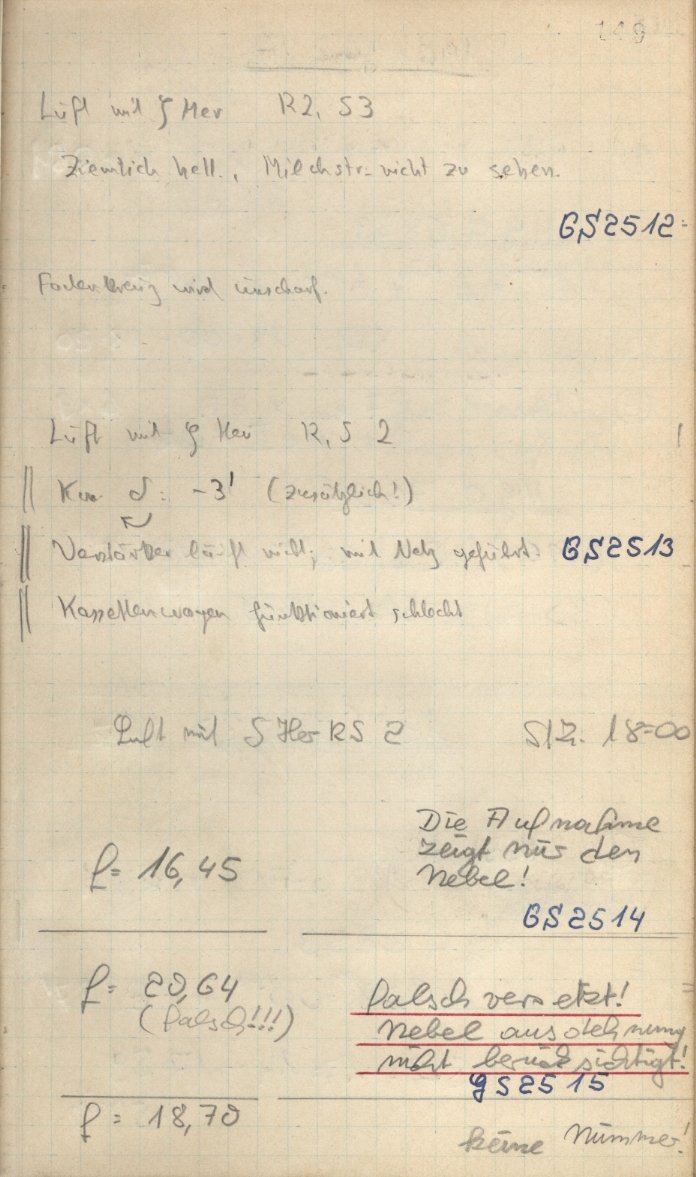 119
Luft mit ζ Her R2, S3
Ziemlich hell., Milchstr. nicht zu sehen.
GS2512
Fadenkreuz wird unscharf.
Luft mit ζ Her R, S 2
Korr δ: -3' (zusätzlich!)
Verstärker läuft nicht; mit Netz geführt. GS2513
Kassettenwagen funktioniert schlecht
Luft mit ζ Her RS 2 StZ. 18-00
Die Aufnahme
zeigt nur den
Nebel!
f= 16,45
GS2514
f= 20,64
(falsch!!!)
falsch versetzt!
Nebel ausdehnung
nicht berücksichtigt!
GS2515
f= 18,70
keine Nummer!